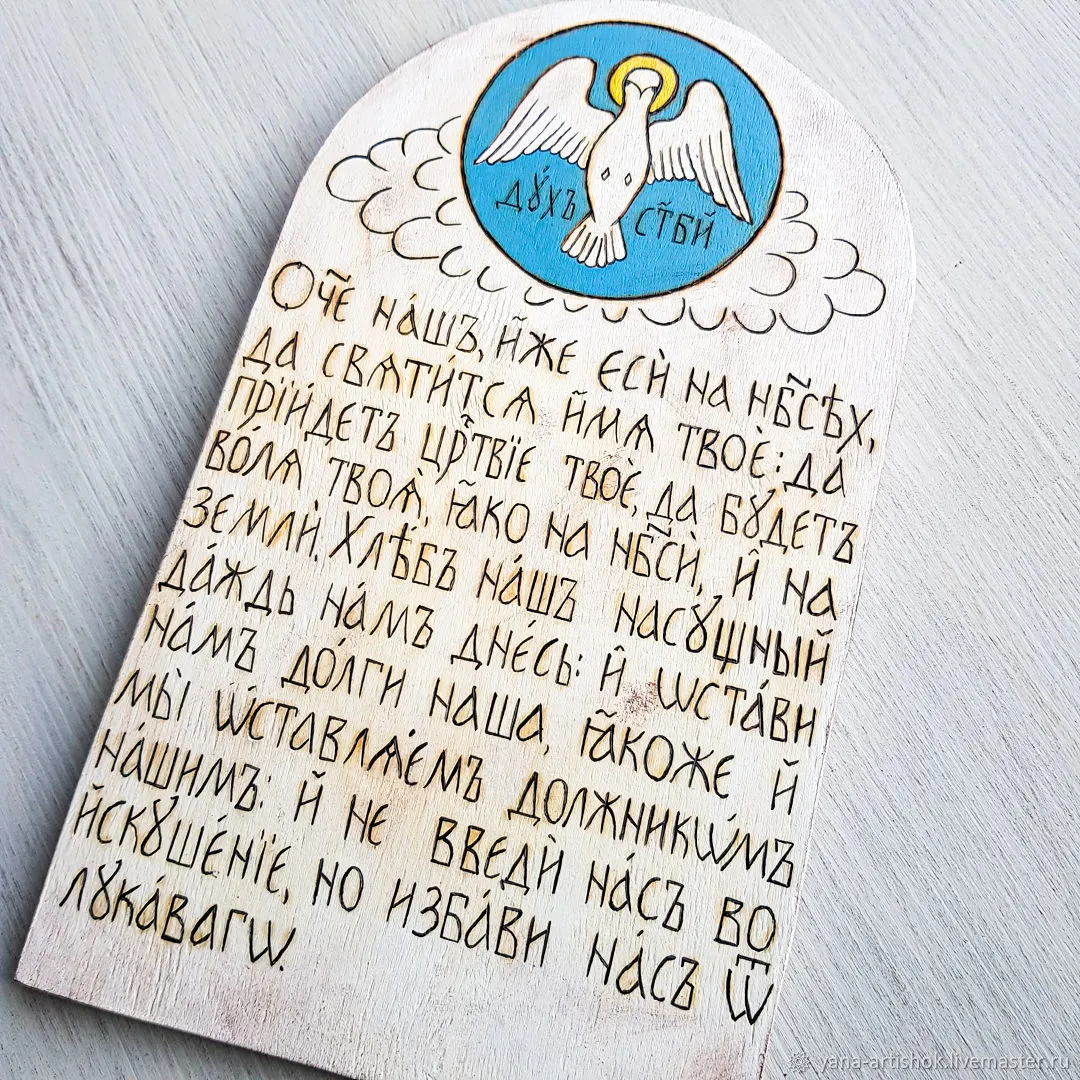 Дꙋ́хъ ст҃ы́й
Ѻч҃е на́шъ, и҆́же є҆сѝ на нб҃сѣ́хъ,
да свѧти́тсѧ и҆́мѧ твоѐ: да
прїи́детъ цр҃твїе твоѐ, да бꙋ́детъ
во́лѧ твоѧ̀, ꙗ҆́кѡ на нб҃сѝ, и҆ на
землѝ. Хлѣ́бъ на́шъ насꙋ́щный
да́ждь на́мъ дне́сь: и҆ ѡ҆ста́ви
на́мъ до́лги наша, ꙗ҆́коже и҆
мы̀ ѡ҆ставлѧ́емъ должникѡ́мъ
на́шимъ: и҆ не введѝ на́съ во
и҆скꙋше́нїе, но избави на́съ ѿ
лꙋка́вагѡ.
yana-artishok.livemaster.ru